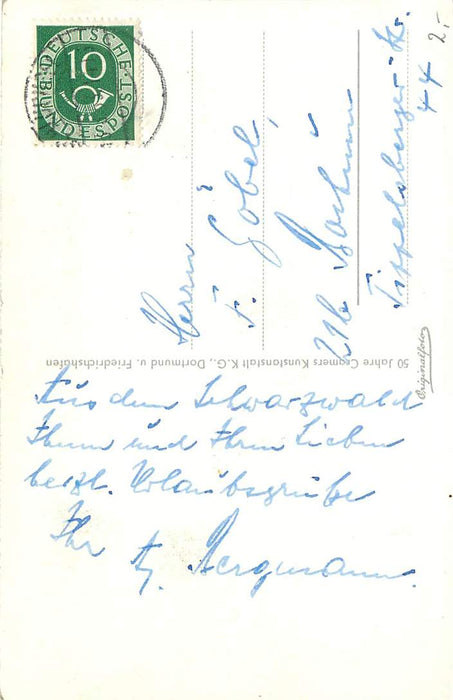 DEUTSCHE BUNDESPOST
10
2.-
Herrn
F. Göbel,
21b Bochum
Tippelsberger Str.
44
50 Jahre Cramers Kunstanstalt K.G., Dortmund u. Friedrichshafen
Originalfoto
Aus dem Schwarzwald
Ihnen und Ihren Lieben
herzl. Urlaubsgrüße
Ihr
Bergmann.